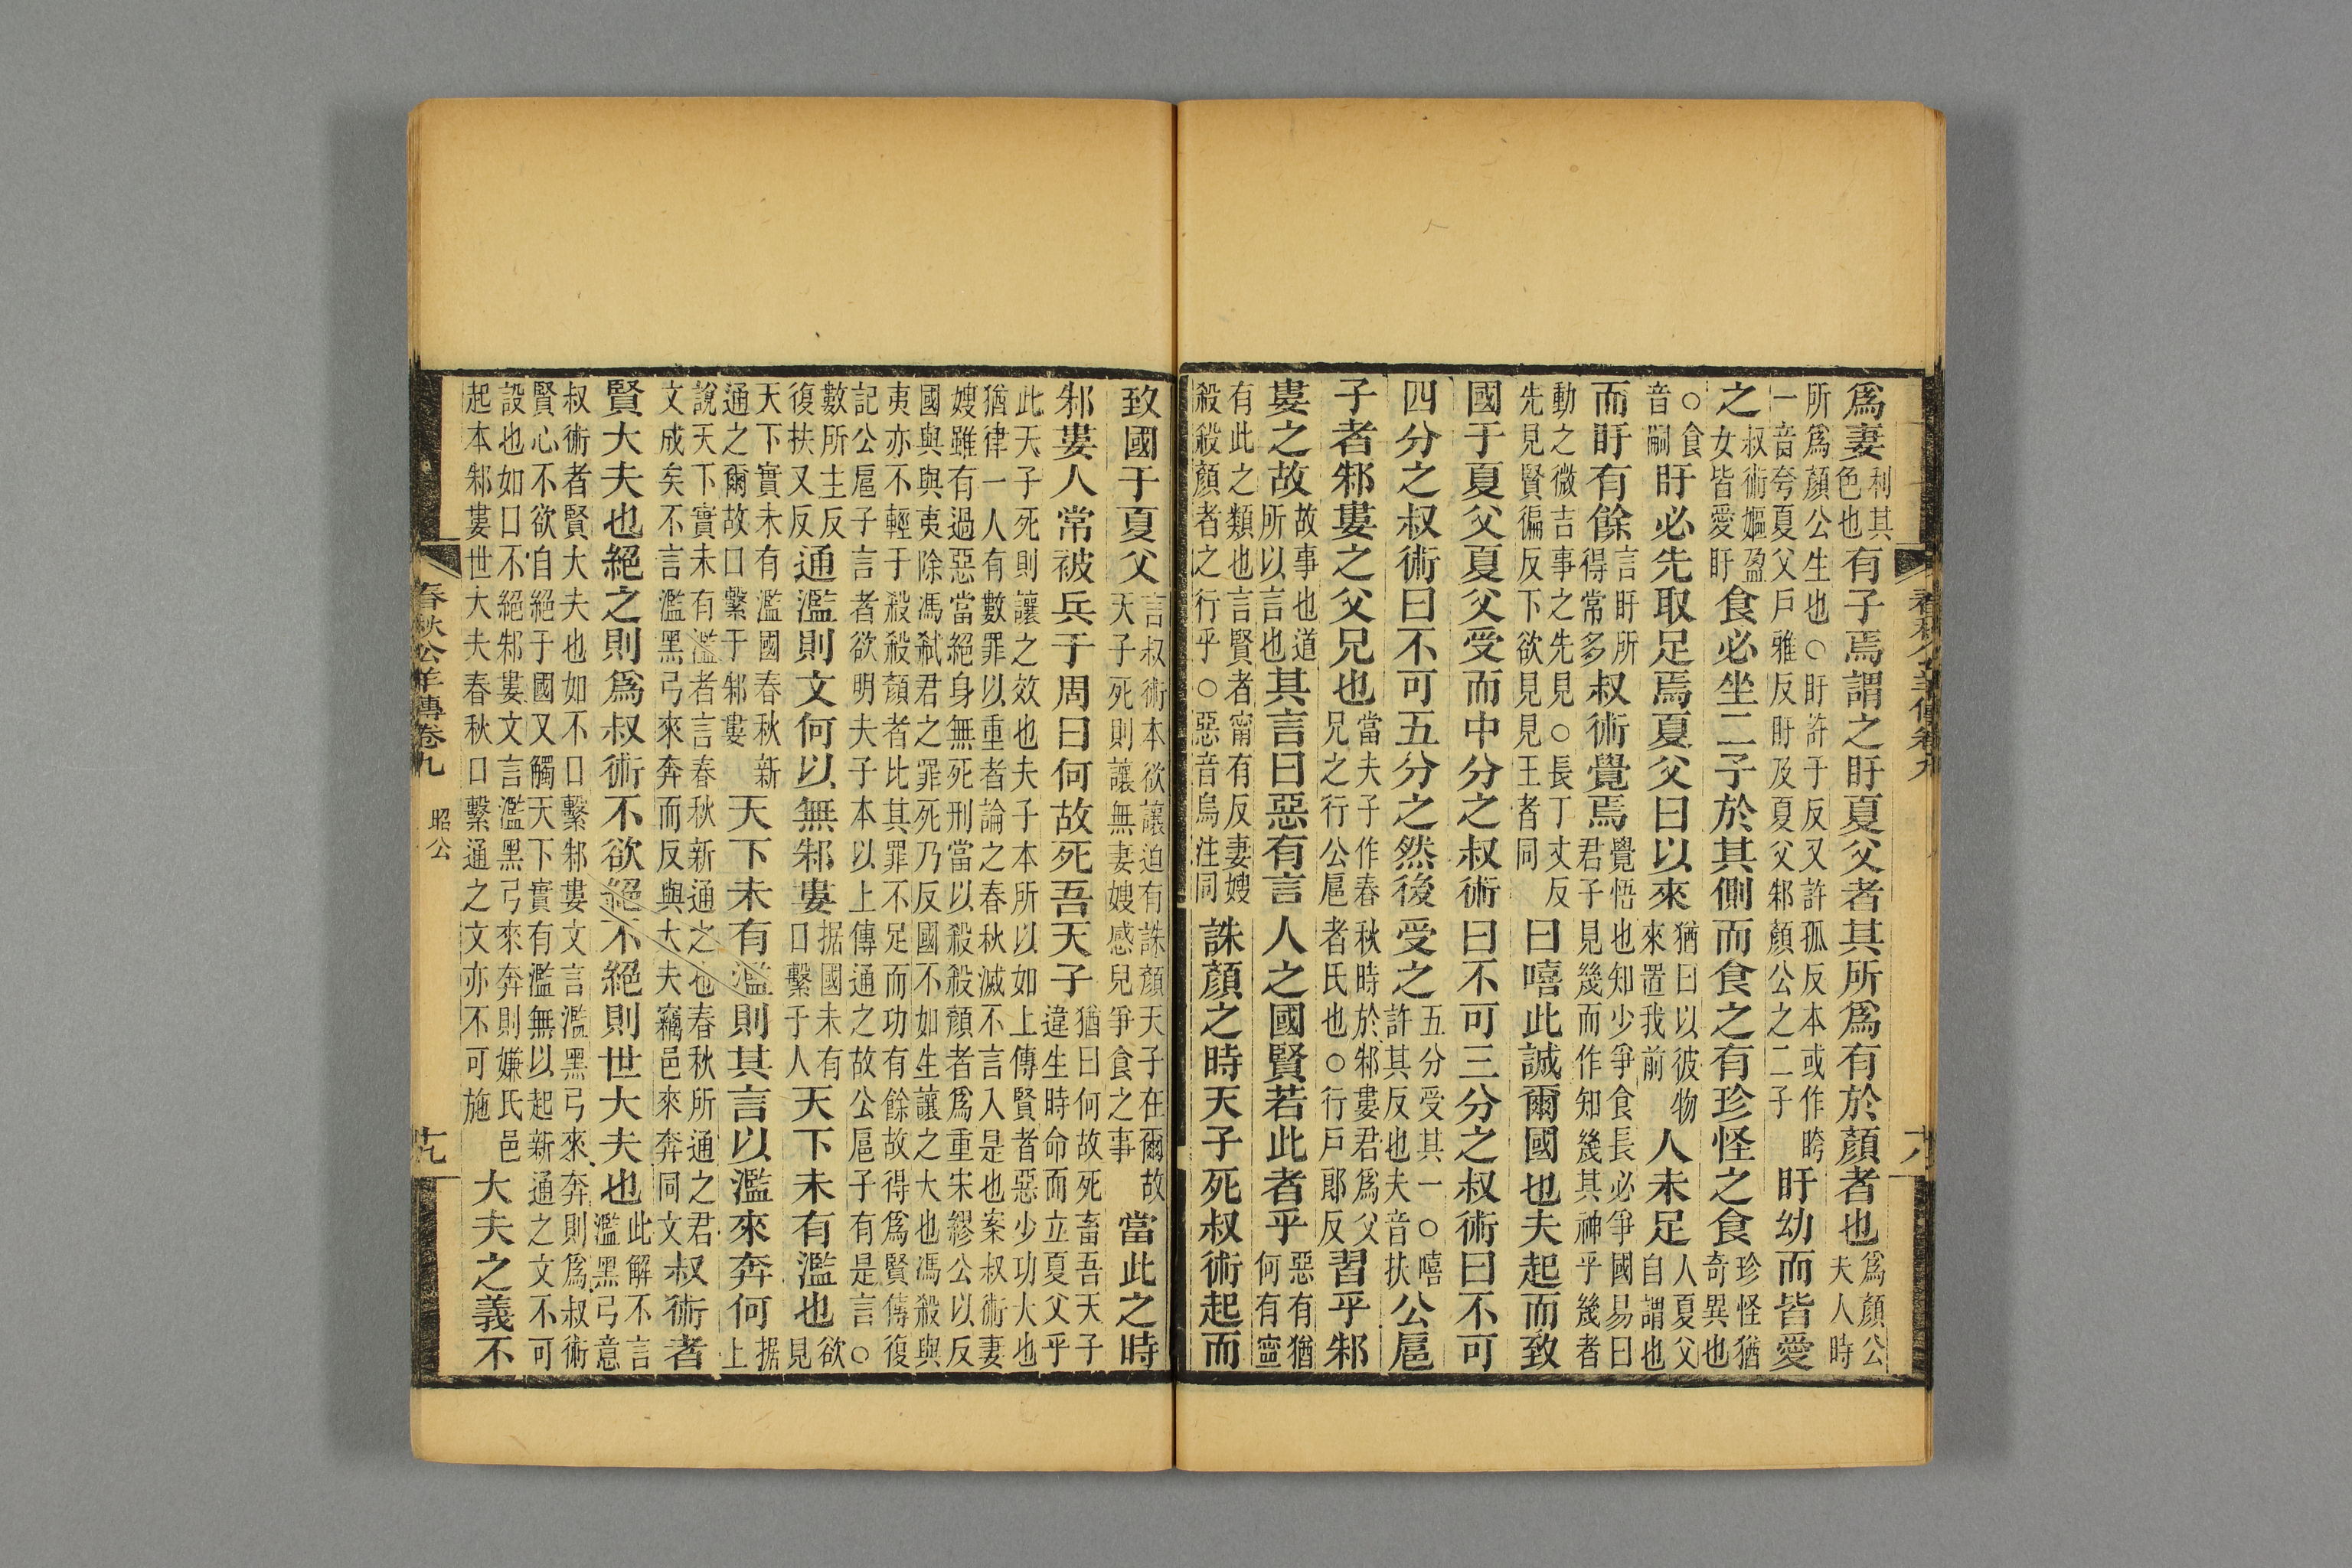 爲妻利其色也有子焉謂之盱夏父者其所爲有於顏者也爲顏公夫人時
所爲顏公生也○盱許于反又許孤反本或作一音夸夏父戶雅反盱及夏父邾顏公之二子盱幼而皆愛
之叔術嫗盈女皆愛盱食必坐二子於其側而食之有珍怪之食珍怪猶奇異也
○食音嗣盱必先取足焉夏父曰以來猶曰以彼物來置我前人未足人夏父自謂也
而盱有餘言盱所得常多叔術覺焉覺悟也知少爭食長必爭國易曰君子見幾而作知幾其神乎幾者
動之微吉事之先見○長丁丈反先見賢徧反下欲見見王者同曰嘻此誠爾國也夫起而致
國于夏父夏父受而中分之叔術曰不可三分之叔術曰不可
四分之叔術曰不可五分之然後受之五分受其一○嘻許其反也夫音扶公扈
子者邾婁之父兄也當夫子作春秋時於邾婁君爲父兄之行公扈者氏也○行戶郎反習乎邾
婁之故故事也道所以言也其言曰惡有言人之國賢若此者乎惡有猶何有寧
有此之類也言賢者甯有反妻嫂殺殺顏者之行乎○惡音烏注同誅顏之時天子死叔術起而
致國于夏父言叔術本欲讓迫有誅顏天子在爾故天子死則讓無妻嫂感兒爭食之事當此之時
邾婁人常被兵于周曰何故死吾天子猶曰何故死畜吾天子違生時命而立夏父乎
此天子死則讓之效也夫子本所以如上傳賢者惡少功大也猶律一人有數罪以重者論之春秋滅不言入是也案叔術妻
嫂雖有過惡當絕身無死刑當以殺殺顏者爲重宋繆公以反國與與夷除馮弒君之罪死乃反國不如生讓之大也馮殺與
夷亦不輕于殺殺顏者比其罪不足而功有餘故得爲賢傳復記公扈子言者欲明夫子本以上傳通之故公扈子有是言○
數所主反復扶又反通濫則文何以無邾婁据國未有口繫于人天下未有濫也欲見
天下實未有濫國春秋新通之爾故口繫于邾婁天下未有濫則其言以濫來奔何据上
說天下實未有濫者言春秋新通之也春秋所通之君文成矣不言濫黑弓來奔而反與大夫竊邑來奔同文叔術者
賢大夫也絕之則爲叔術不欲絕不絕則世大夫也此解不言濫黑弓意
叔術者賢大夫也如不口繫邾婁文言濫黑弓來奔則爲叔術賢心不欲自絕于國又觸天下實有濫無以起新通之文不可
設也如口不絕邾婁文言濫黑弓來奔則嫌氏邑起本邾婁世大夫春秋口繫通之文亦不可施大夫之義不
春秋公羊傳卷九 昭公 十九